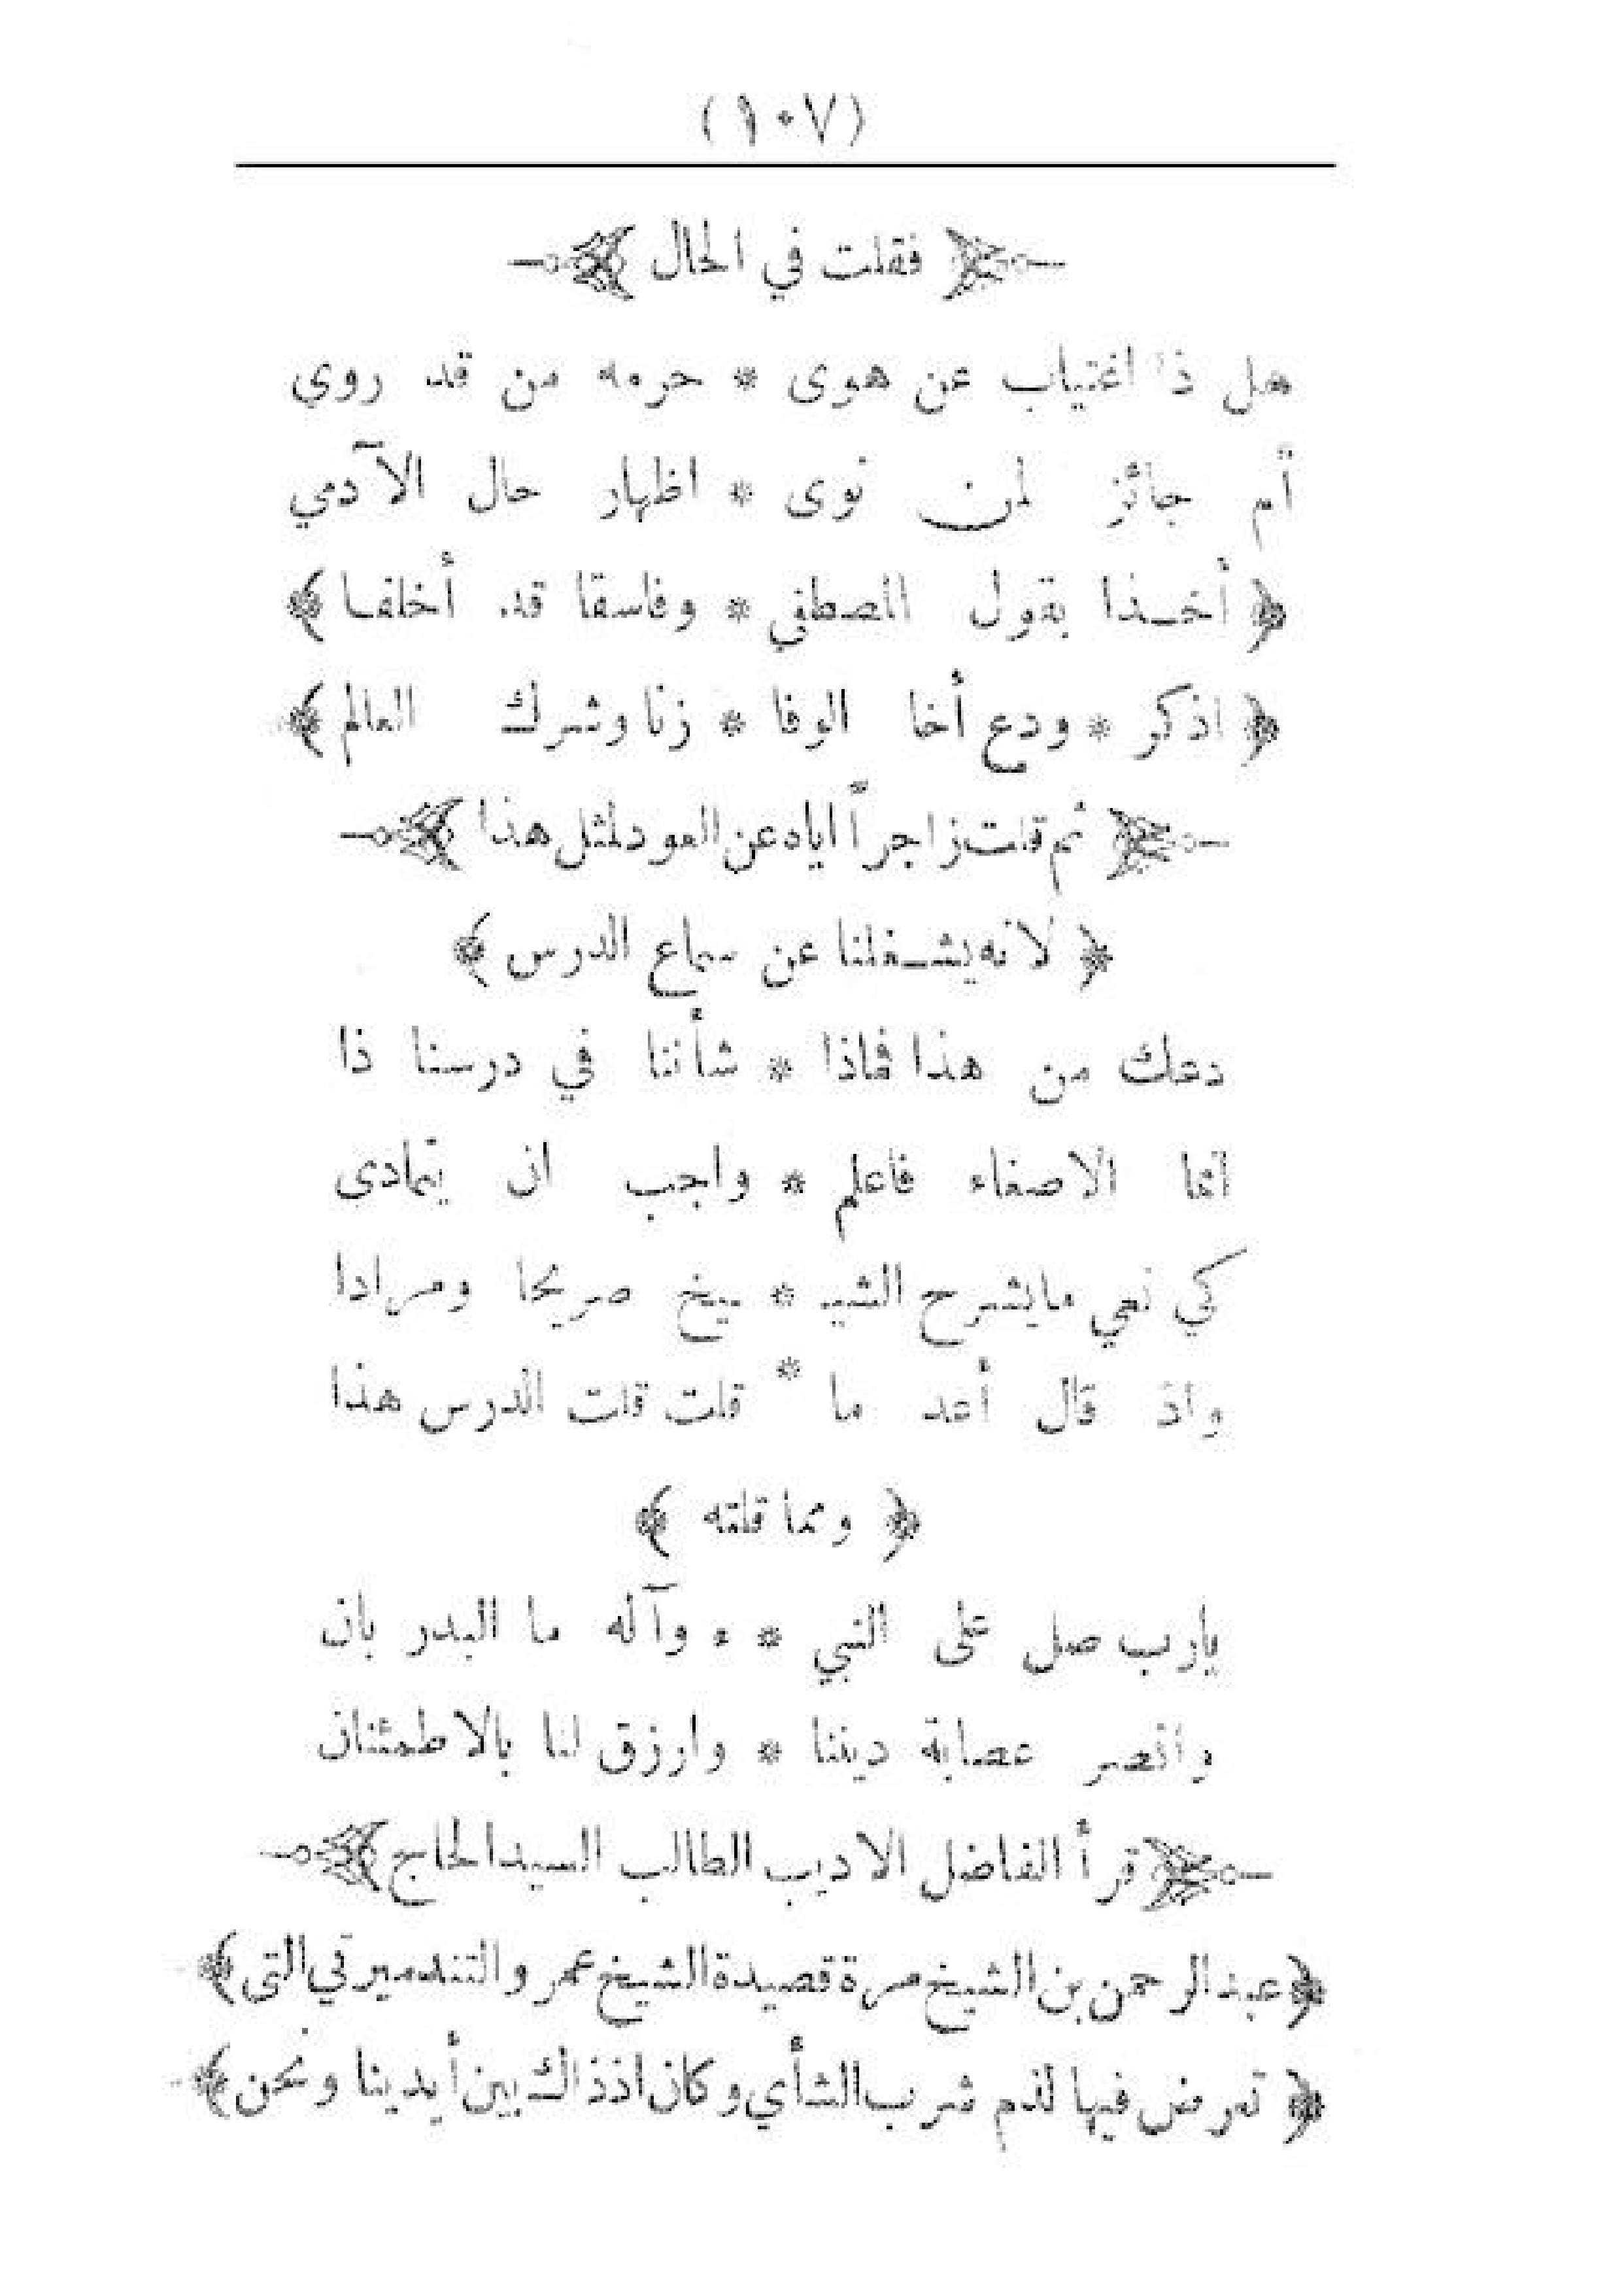 (١٠٧)
﴿ فقلت في الحال ﴾
هل ذا اغتياب عن هوى * حرمه من قد روي
أم جائز لمن نوى * اظهار حال الآدمي
﴿ أخذا بقول المصطفي * وفاسقا قد أخلفا ﴾
﴿ اذكر * ودع أخا الوفا * زنا وشرك العالم ﴾
﴿ ثم قلت زاجراً اياه عن العود لمثل هذا ﴾
﴿ لانه يشغلنا عن سماع الدرس ﴾
دعك من هذا فماذا * شأننا في درسنا ذا
انما الاصغاء فاعلم * واجب ان يتمادى
كي نعي ما يشرح الشيـ * ـيخ صريحا ومرادا
واذ قال أعد ما * قلت قلت الدرس هذا
﴿ ومما قلته ﴾
يارب صل على النبي * ء وآله ما البدر بان
وانصر عصابة ديننا * وارزق لنا بالاطمئنان
﴿ قرأ الفاضل الاديب الطالب السيد الحاج ﴾
﴿ عبد الرحمن بن الشيخ مرة قصيدة الشيخ عمر والتندميرتي التى ﴾
﴿ تعرض فيها لذم شرب الشأي وكان اذ ذاك بين أيدينا ونحن ﴾